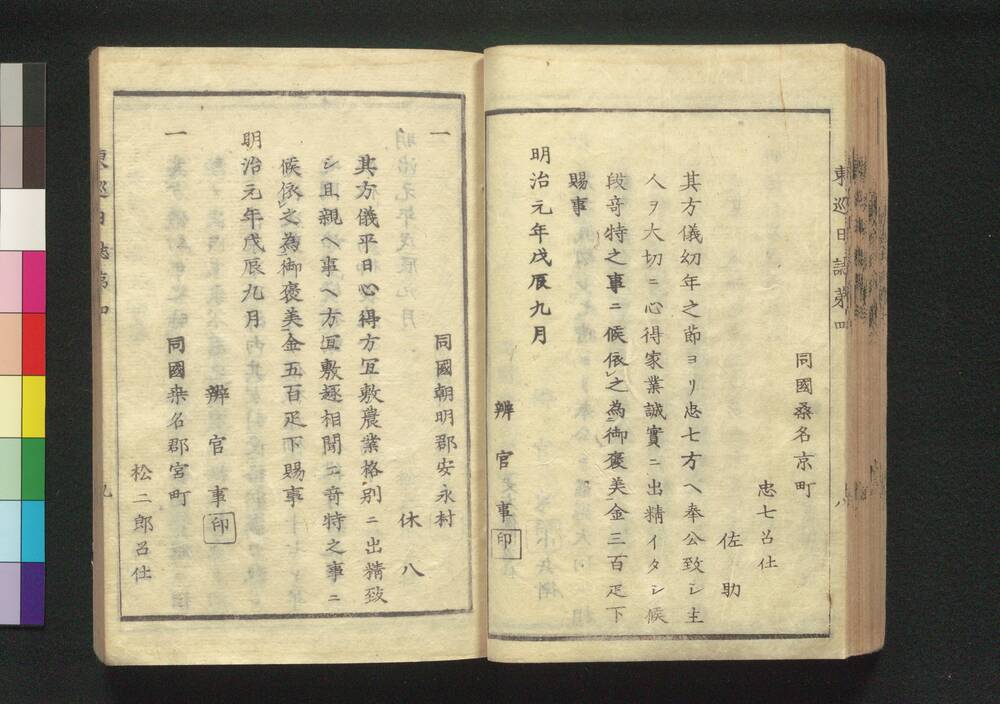 東巡日誌第四
八
同國桑名京町
忠七召仕
佐助
其方儀幼年之節ヨリ忠七方ヘ奉公致シ主
人ヲ大切ニ心得家業誠實ニ出精イタシ候
段奇特之事ニ候依レ之為二御褒美一金三百疋下
賜事
明治元年戊辰九月
辨官事印
一
同國朝明郡安永村
休八
其方儀平日心得方冝敷農業格別ニ出精致
シ且親ヘ事ヘ方冝敷趣相聞ニ奇特之事ニ
候依レ之為二御褒美一金五百疋下賜事
明治元年戊辰九月
辨官事印
一
同國桒名郡宮町
松二郎召仕
東巡日誌第四
九